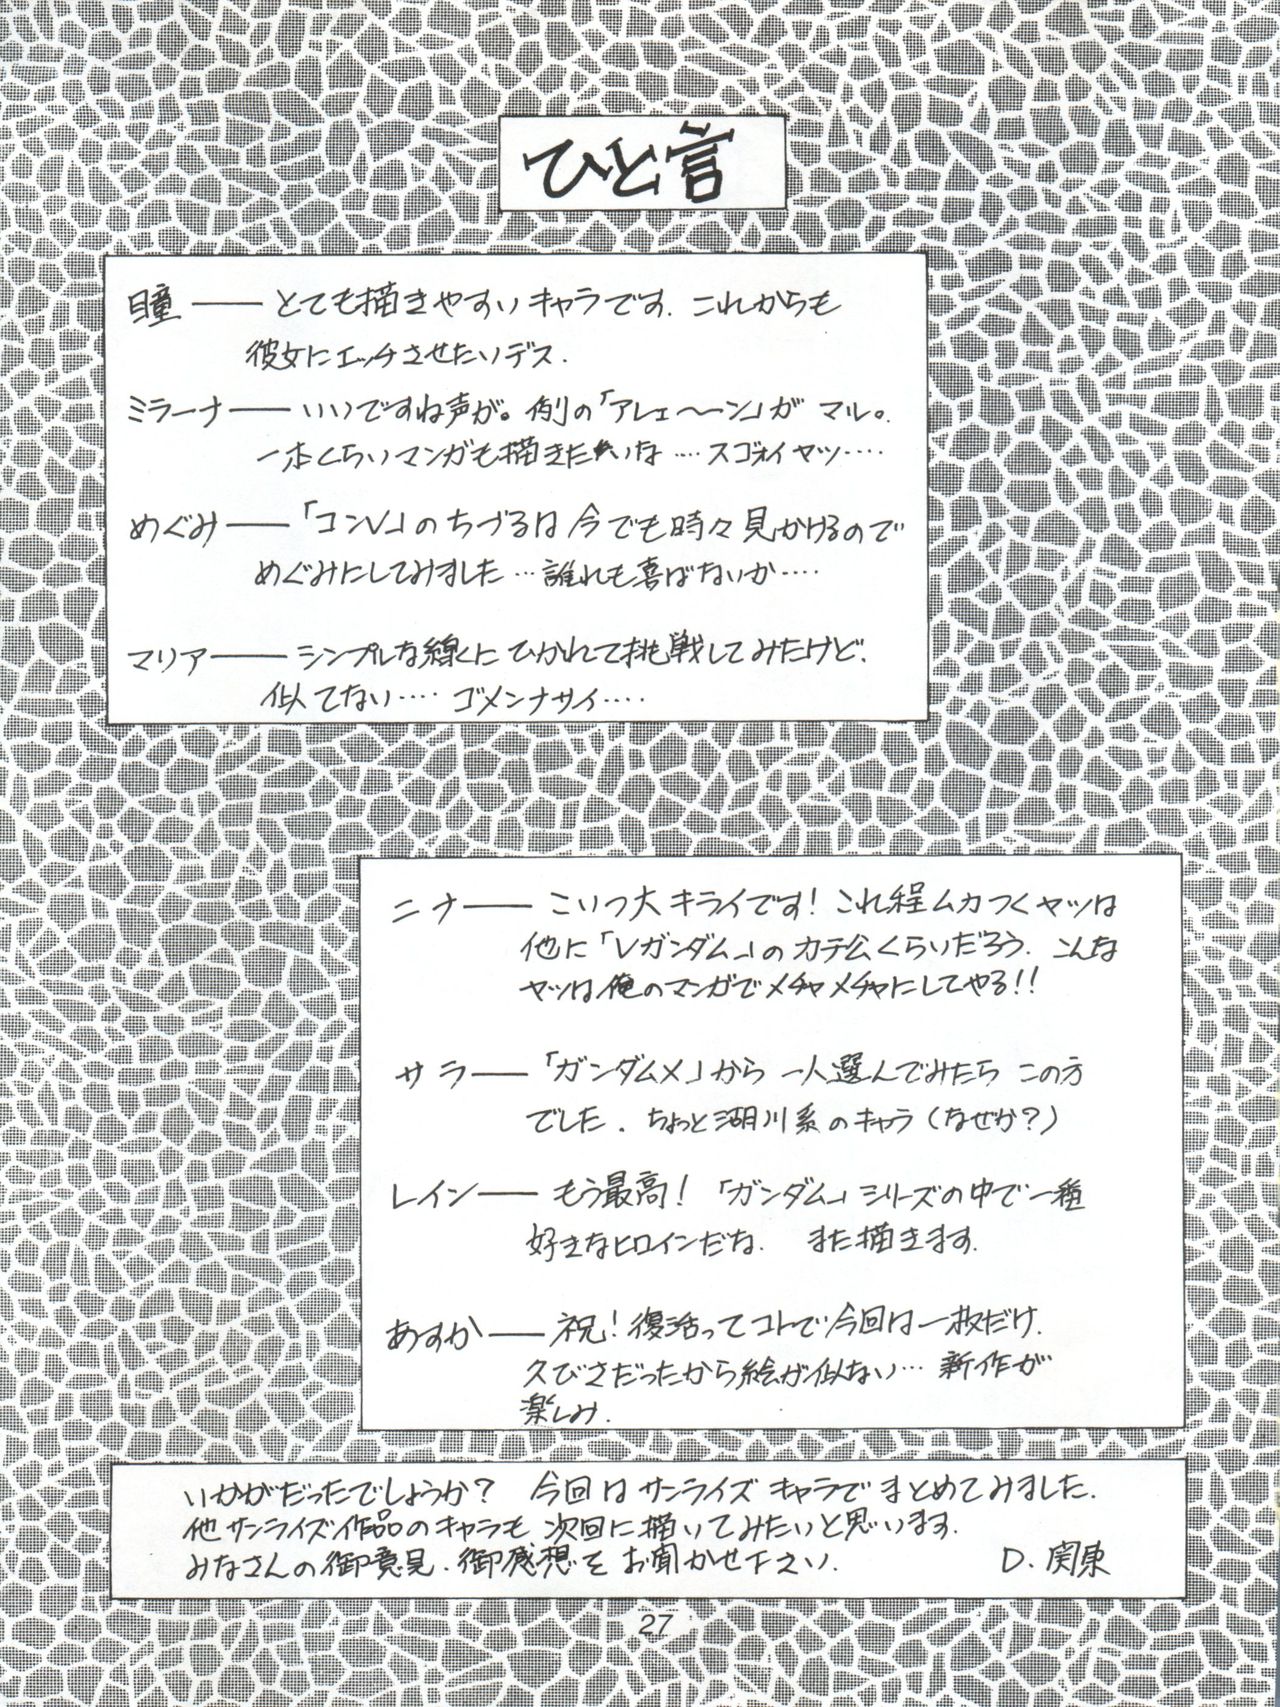 ひと言
瞳 ― とても描きやすいキャラです. これからも
彼女にエッチさせたいデス.
ミラーナ ― いいですね声が。例の「アレェ〜ーン」が マル。
一本くらいマンガも描きたいな ‥‥ スゴォイヤツ‥‥
めぐみ ― 「コンV」のちづるは今でも時々見かけるので
めぐみにしてみました … 誰れも喜ばないか‥‥
マリア ― シンプルな線にひかれて挑戦してみたけど.
似てない‥‥ ゴメンナサイ‥‥
ニナ ― こいつ大キライです! これ程ムカつくヤツは
他に「Vガンダム」のカテ公くらいだろう. こんな
ヤツは俺のマンガでメチャメチャにしてやる!!
サラ ― 「ガンダムX」から 一人選んでみたら この方
でした. ちょっと湖川系のキャラ(なぜか?)
レイン ― もう最高! 「ガンダム」シリーズの中で一種
好きなヒロインだな. また描きます.
あすか ― 祝! 復活ってコトで今回は一枚だけ.
久びさだったから絵が似ない… 新作が
楽しみ.
いかがだったでしょうか? 今回はサンライズキャラでまとめてみました.
他サンライズ作品のキャラも次回に描いてみたいと思います.
みなさんの御意見.御感想をお聞かせ下さい. D.関東
27